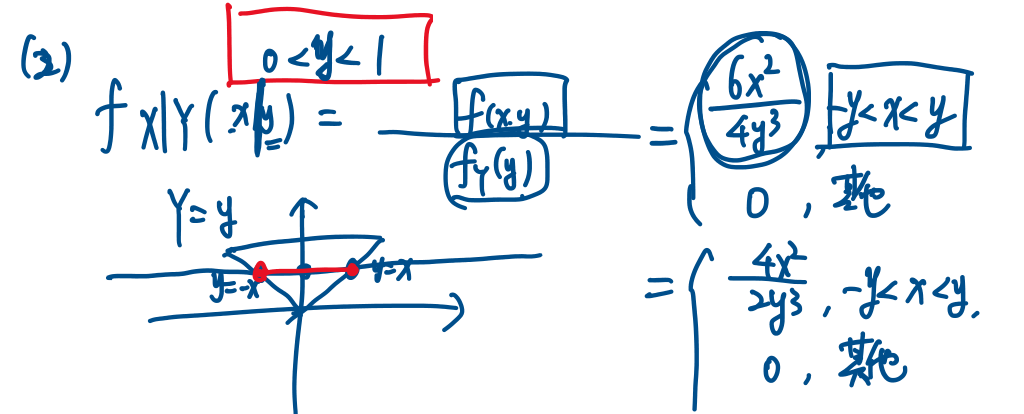 (2)
0 < y < 1
f X|Y (x|y) = f(x,y) / f_Y(y) = { 6x² / 4y³, -y < x < y
0, 其他
Y = y
y=-x
y=x
= { 4x² / 2y³, -y < x < y.
0, 其他